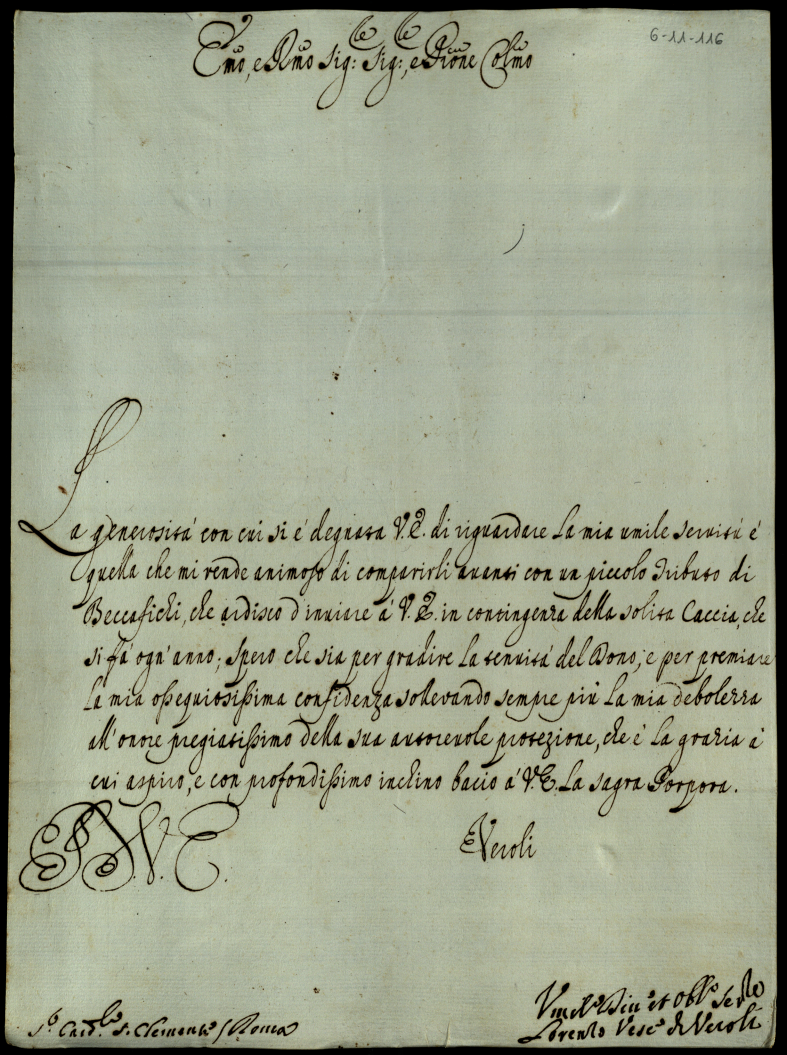 6-11-116
Emo, e Rmo Sig:le Sig:le, e Pione Colmo
La generosità con cui si è degnata V.E. di riguardare la mia umile servitù è
quella che mi rende animoso di comparirli avanti con un piccolo Tributo di
Beccafichi, che ardisco d'inviare à V.E. in contingenza della solita Caccia, che
si fà ogn'anno; spero che sia per gradire la tenuità del Dono, e per premiare
la mia ossequiosissima confidenza sollevando sempre più la mia debolezza
all'onore pregiatissimo della sua autorevole protezione, che è la grazia à
cui aspiro, e con profondissimo inchino bacio à V.E. la sagra Porpora.
Di V. E.
Veroli
Sr. Card.le S. Clemente / Roma
Umilo Divo et Obbo Serre
Lorenzo Vesco di Veroli